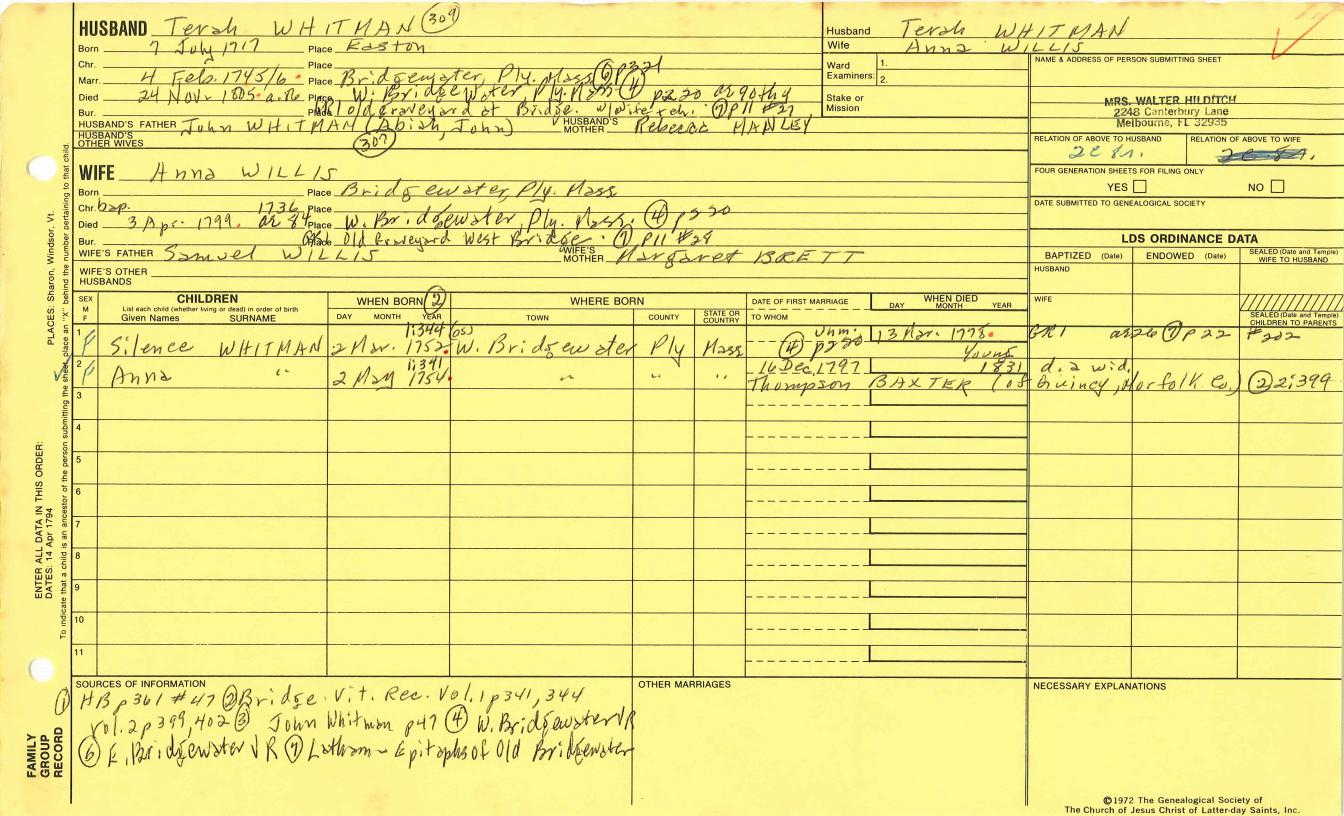 HUSBAND Terah WHITMAN 309
Born 7 July 1717 Place Easton
Chr. Place
Marr. 4 Feb. 1745/6 Place Bridgewater, Ply. Mass 6 p321
Died 24 Nov. 1805 Place W. Bridgewater Ply. Mass 4 p220
Bur. Place old graveyard at Bridge. 7 p11 #27
HUSBAND'S FATHER John WHITMAN (Abiah, John) HUSBAND'S MOTHER Rebecca MANLEY
HUSBAND'S OTHER WIVES 307
WIFE Anna WILLIS
Born Place Bridgewater, Ply. Mass
Chr. bap. 1736 Place
Died 3 Apr. 1799. ae 84 Place W. Bridgewater, Ply. Mass. 4 p220
Bur. Place Old Graveyard West Bridge. 7 p11 #28
WIFE'S FATHER Samuel WILLIS WIFE'S MOTHER Margaret BRETT
WIFE'S OTHER HUSBANDS
Husband Terah WHITMAN
Wife Anna WILLIS
Ward Examiners: 1.
2.
Stake or Mission
NAME & ADDRESS OF PERSON SUBMITTING SHEET
MRS. WALTER HILDITCH
2248 Canterbury Lane
Melbourne, FL 32935
RELATION OF ABOVE TO HUSBAND RELATION OF ABOVE TO WIFE
FOUR GENERATION SHEETS FOR FILING ONLY
YES NO
DATE SUBMITTED TO GENEALOGICAL SOCIETY
LDS ORDINANCE DATA
BAPTIZED (Date) ENDOWED (Date) SEALED (Date and Temple) WIFE TO HUSBAND
HUSBAND
WIFE
SEALED (Date and Temple) CHILDREN TO PARENTS
SEX M F CHILDREN WHEN BORN 2 WHERE BORN DATE OF FIRST MARRIAGE WHEN DIED
List each child (whether living or dead) in order of birth
Given Names SURNAME DAY MONTH YEAR TOWN COUNTY STATE OR COUNTRY TO WHOM DAY MONTH YEAR
1 F Silence WHITMAN 2 Mar. 1752 1:344 (OS) W. Bridgewater Ply Mass unm. 4 p220 13 Mar. 1778. GR1 ae 26 7 p22 #202
2 F Anna " 2 May 1754 1:341 " " " 16 Dec. 1797 Young 1831 d. a wid.
Thompson BAXTER (of Quincy, Norfolk Co.) 2 2:399
3
4
5
6
7
8
9
10
11
SOURCES OF INFORMATION
1 HB p361 #47 2 Bridge. Vit. Rec. Vol. 1 p341, 344
vol. 2 p399, 402 3 John Whitman p47 4 W. Bridgewater VR
6 E. Bridgewater VR 7 Latham - Epitaphs of Old Bridgewater
OTHER MARRIAGES
NECESSARY EXPLANATIONS
©1972 The Genealogical Society of
The Church of Jesus Christ of Latter-day Saints, Inc.
PLACES: Sharon, Windsor, Vt.
To indicate that a child is an ancestor of the person submitting the sheet, place an "X" behind the number pertaining to that child.
ENTER ALL DATA IN THIS ORDER:
DATES: 14 Apr 1794
FAMILY GROUP RECORD